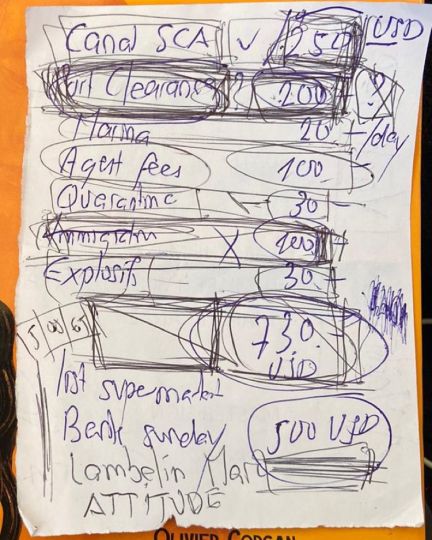 Canal SCA √ 250 USD
Port Clearance ? 200 ?
Marina 20 -/day
Agent fees 100
Quarantine 30
Immigration X 100
Explosifs 30
730.
USD
supermarket
Bank sunday 500 USD
Lambelin Marc
ATTITUDE
OLIVIER CORSAN